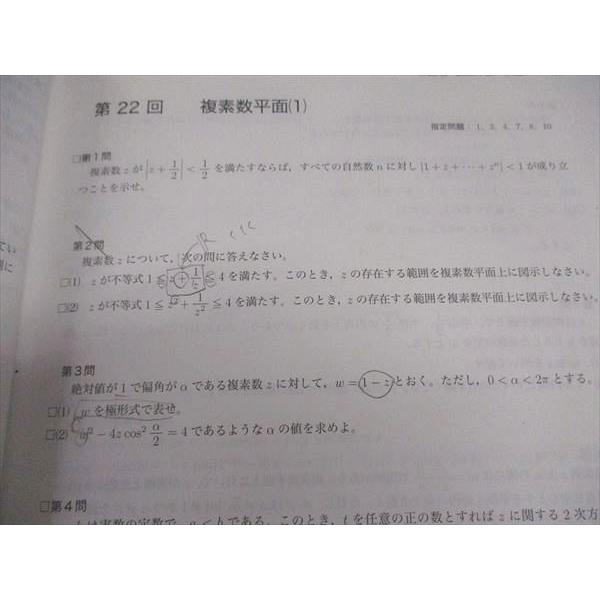 第22回 複素数平面(1)
指定問題:1, 3, 4, 7, 8, 10
□第1問
複素数 z が |z + 1/2| < 1/2 を満たすならば,すべての自然数 n に対し |1 + z + ⋯ + zⁿ| < 1 が成り立
つことを示せ。
R
第2問
複素数 z について,次の問に答えなさい。
□(1) z が不等式 1 ≦ z + 1/z ≦ 4 を満たす。このとき,z の存在する範囲を複素数平面上に図示しなさい。
□(2) z が不等式 1 ≦ z² + 1/z² ≦ 4 を満たす。このとき,z の存在する範囲を複素数平面上に図示しなさい。
第3問
絶対値が 1 で偏角が α である複素数 z に対して,w = 1 − z とおく。ただし,0 < α < 2π とする。
□(1) w を極形式で表せ。
□(2) w² − 4z cos² α/2 = 4 であるような α の値を求めよ。
□第4問
は実数の定数で,a < b である。このとき,t を任意の正の数とすれば z に関する 2 次方